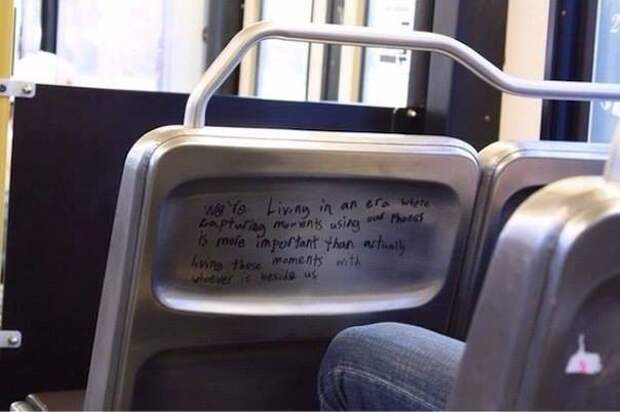 we're Living in an era where
capturing moments using our phones
is more important than actually
living these moments with
whoever is beside us